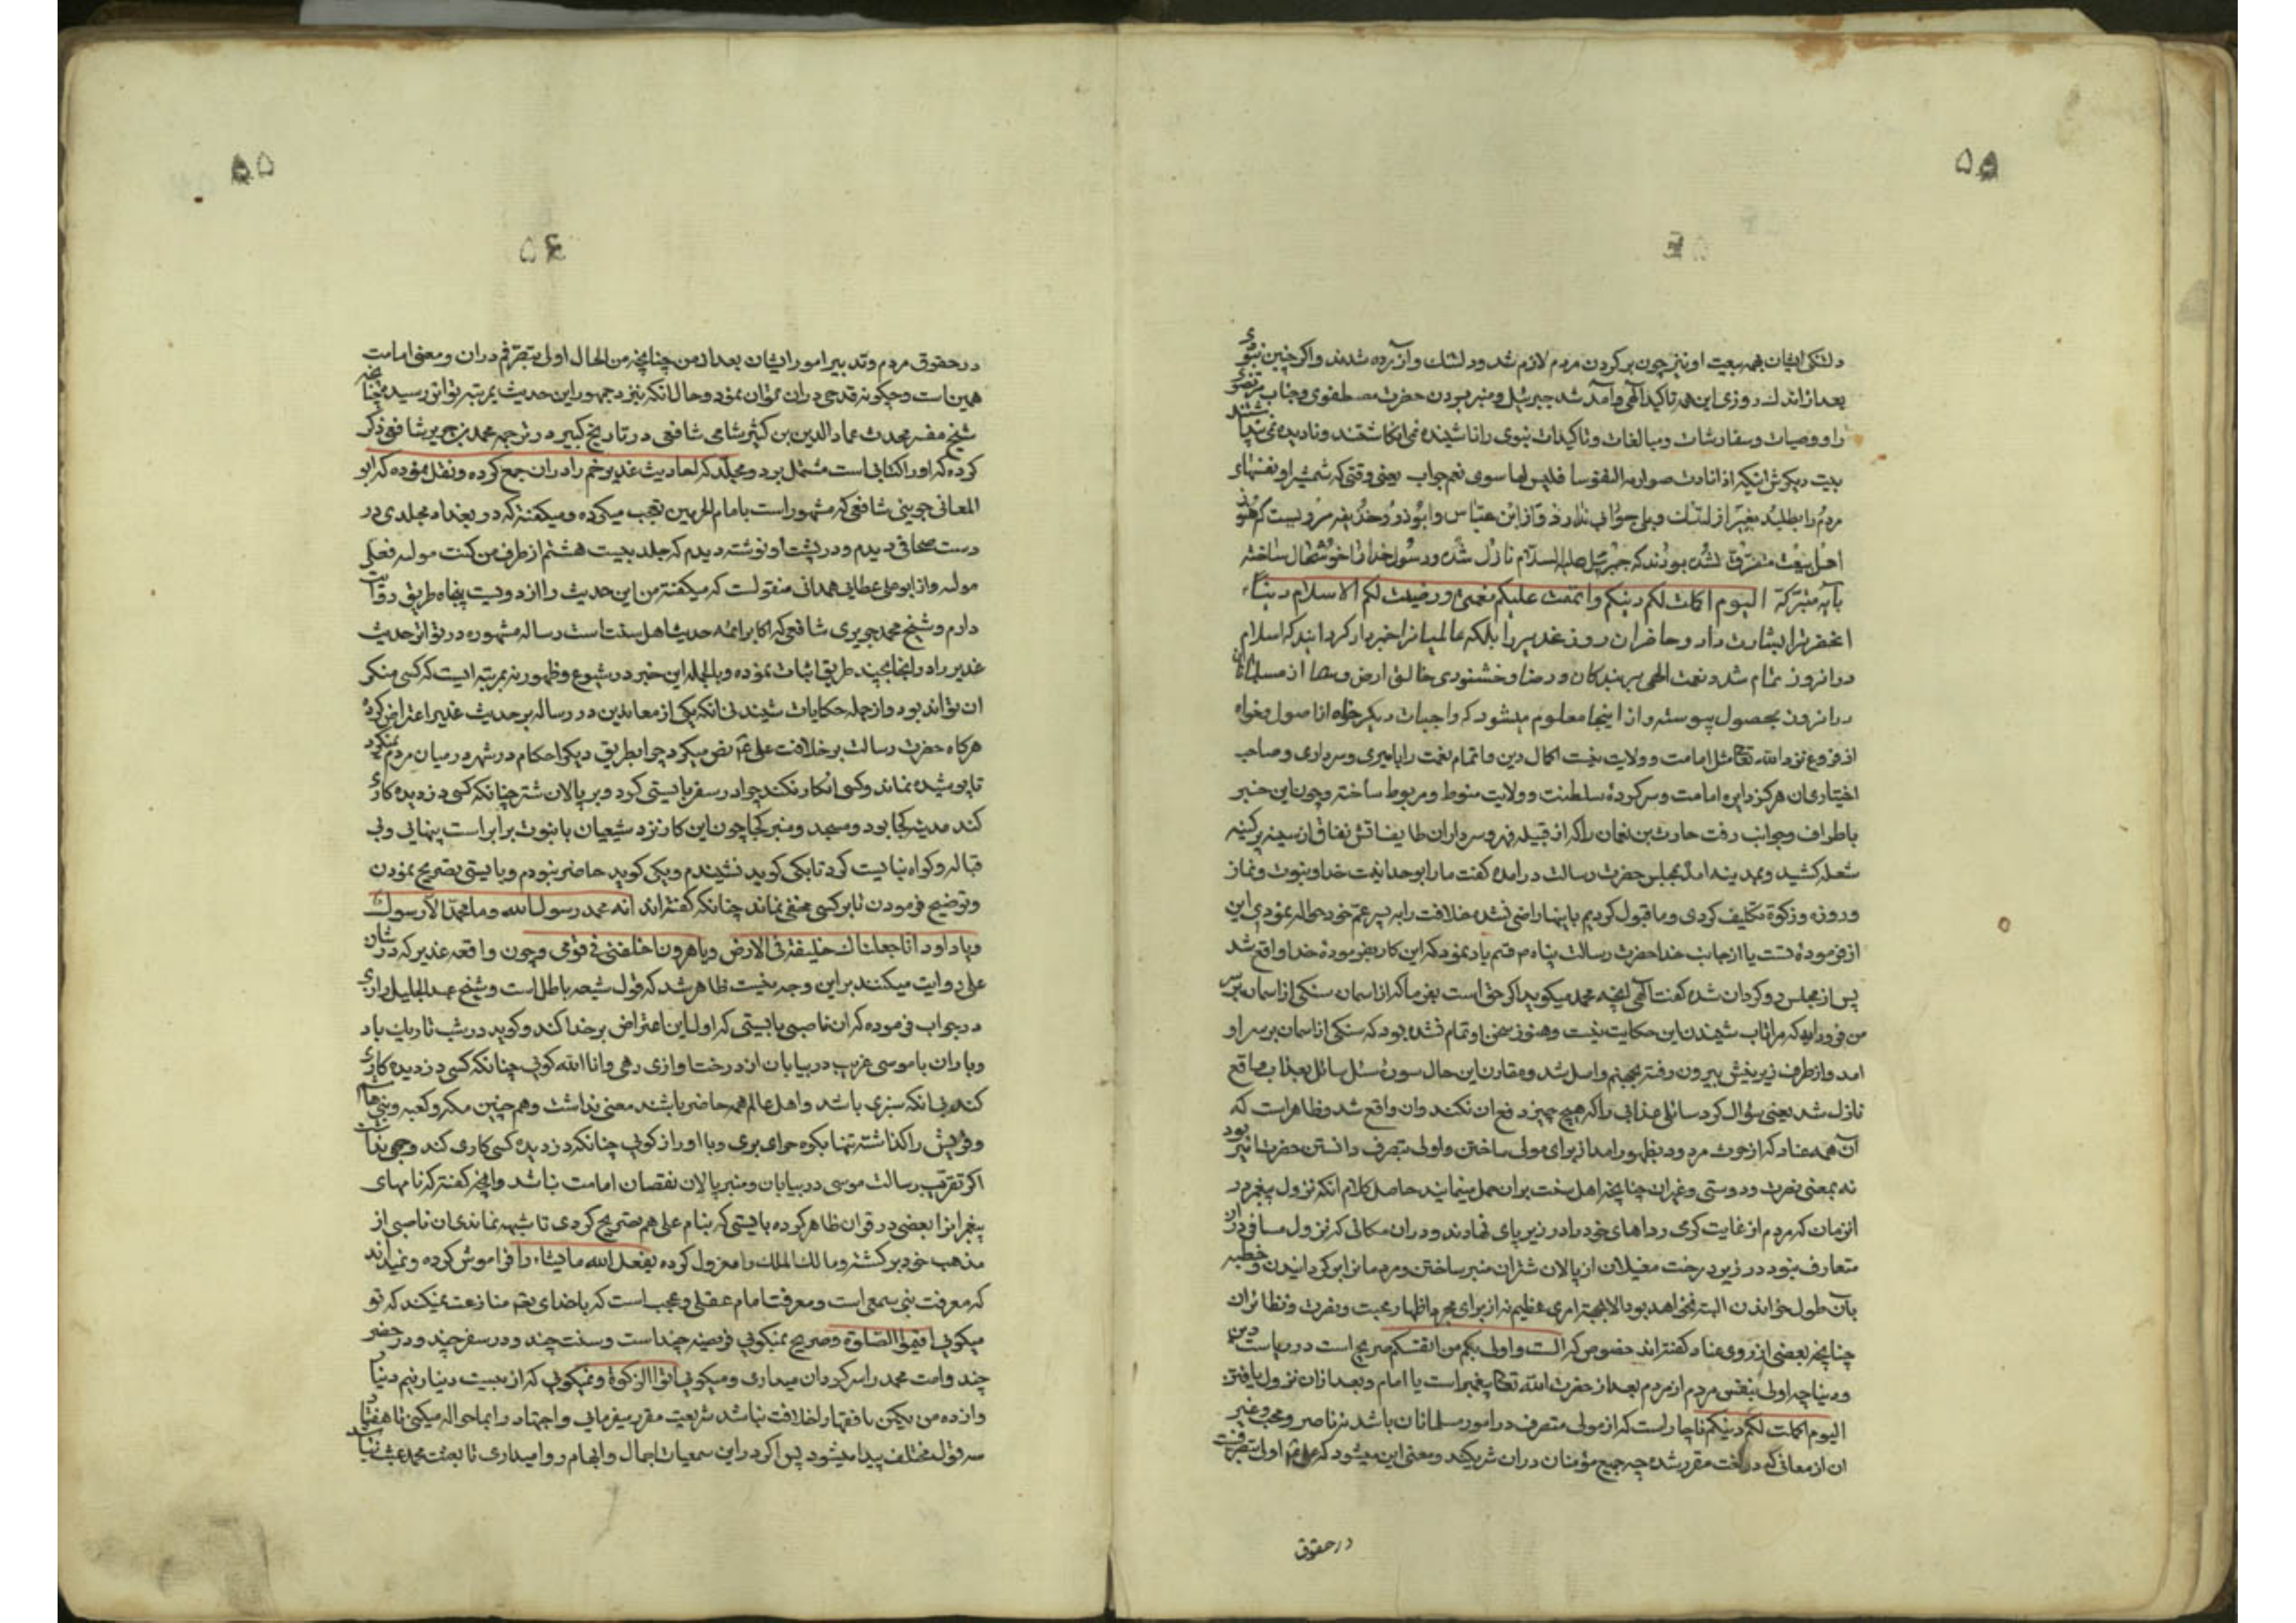 ۵۵
دلتنکی ایشان بجهه بیعت او نیز چون بر کردن مردم لازم شد و دلتنک و آزرده شدند و اکر چنین نبودی
بعد از اندک روزی این همه تاکید الهی و آمد شد جبرئیل و منبر بودن حضرت مصطفوی و جناب مرتضوی
را و وصیات و سفارشات و مبالغات و تاکیدات نبوی را ناشنیده نمی انکاشتند و نادیده نمی پنداشتند
بیت دیکرش انیکه صوارمه النفوسا فلیس لها سوی نعم جواب یعنی وقتی که شمشیر او نفسهای
مردم را بطلبد بغیر از لبیک و بلی جوابی ندارد و از ابن عباس و ابوذر و حذیفه مرویست که هنوز
اهل بیعت متفرق نشده بودند که جبرئیل علیه السلام نازل شده و رسول خدا را خوشحال ساخته
بآیه متبرکه الیوم اکملت لکم دینکم و اتممت علیکم نعمتی و رضیت لکم الاسلام دینا
انحضرترا بشارت داد و حاضران روز غدیر را بلکه عالمیانرا خبردار کردانید که اسلام
درانروز تمام شد و نعمت الهی بر بندکان و رضا و خشنودی خالق ارض و سما از مسلمانان
درانروز بحصول پیوسته و از اینجا معلوم میشود که واجبات دیکر خواه از اصول و خواه
از فروع نزد الله تعالی مثل امامت و ولایت نیست اکمال دین و اتمام نعمت را بامیری و سرداری و صاحب
اختیاری ان مرکز دایره امامت و سرکرده سلطنت و ولایت منوط و مربوط ساخته و چون این خبر
باطراف و جوانب رفت حارث بن نعمان را که از قبیله فهر و سرداران طایفه اتش نفاق از سینه پر کینه
شعله کشید و بمدینه امد بمجلس حضرت رسالت درامده کفت ما را بوحدانیت خدا و نبوت و نماز
و روزه و زکوة تکلیف کردی و ما قبول کردیم باینها راضی نشده خلافت را به پسر عم خود حواله نمودی این
از فرموده تست یا از جانب خدا حضرت رسالت پناه م قسم یاد نمود که این کار بفرموده خدا واقع شد
پس از مجلس رو کردان شده کفت الهی انچه محمد میکوید اکر حق است بفرما که از اسمان سنکی از اسمان بر سر
من فرود اید که مرا تاب شنیدن این حکایت نیست و هنوز سخن او تمام نشده بود که سنکی از اسمان بر سر او
امد و از طرف زیرینش بیرون رفته بجهنم واصل شد و مقارن این حال سوره سئل سائل بعذاب واقع
نازل شد یعنی سوال کرد سائلی عذابی را که هیچ چیز دفع ان نکند و ان واقع شد و ظاهر است که
آن همه عناد که از حرث مردود بظهور امد از برای مولی ساختن و اولی بتصرف دانستن حضرت امیر بود
نه بمعنی نصرت و دوستی و غیر ان چنانچه اهل سنت بران حمل مینمایند حاصل کلام انکه نزول پیغمبر در
انزمان که مردم از غایت کرمی رداهای خود را در زیر پای نهادند و دران مکانی که نزول مسافر دران
متعارف نبود در زیر درخت مغیلان از پالان شتران منبر ساختن و مردمانرا بر کردانیدن و خطبه
بان طول خواندن البته نخواهد بود الا بجهة امری عظیم نه از برای مجرد اظهار محبت و نصرت و نظائر ان
چنانچه بعضی از روی عناد کفته اند خصوص که الست اولی بکم من انفسکم صریح است در ریاست دین
و دنیا چه اولی بنفس مردم از مردم بعد از حضرت الله تعالی پیغمبر است یا امام و بعد ازان نزول یافتن
الیوم اکملت لکم دینکم ناچار است که از مولی متصرف در امور مسلمانان باشد نه ناصر و محب و غیر
ان از معانی که در لغت مقرر شده چه جمیع مؤمنان دران شریکند و معنی این میشود که علی اولی بتصرفست
در حقوق
۵۵
۵۶
در حقوق مردم و تدبیر امور ایشان بعد از من چنانچه من الحال اولی بتصرفم دران و معنی امامت
همین است و چکونه قدحی دران توان نمود و حال انکه نزد جمهور این حدیث بمرتبه تواتر رسیده چنانچه
شیخ مفسر محدث عماد الدین بن کثیر شامی شافعی در تاریخ کبیر در ترجمه محمد بن جریر شافعی ذکر
کرده که او را کتابی است مشتمل بر دو مجلد که احادیث غدیر خم را دران جمع کرده و نقل نموده که ابو
المعالی جوینی شافعی که مشهور است بامام الحرمین تعجب میکرده و میکفته که در بغداد مجلدی در
دست صحافی دیدم و در پشت او نوشته دیدم که جلد بیست هشتم از طرف من کنت مولاه فعلی
مولاه و از ابو علی عطایی همدانی منقولست که میکفته من این حدیث را از دویست پنجاه طریق روایت
دارم و شیخ محمد جزری شافعی که اکابر ائمه حدیث اهل سنت است رساله مشهوره در تواتر حدیث
غدیر دارد و انجا بچند طریق اثبات نموده و بالجمله این خبر در شیوع و ظهور نه بمرتبه ایست که کسی منکر
ان تواند بود و از جمله حکایات شنیدنی انکه یکی از معاندین در رساله بر حدیث غدیر اعتراض کرده
هرکاه حضرت رسالت بر خلافت علی نص میکرد چرا بطریق دیکر احکام در شهر در میان مردم نمیکرد
تا پوشیده نماند و کسی انکار نکند چرا در سفر بایستی کرد و بر پالان شتر چنانکه کسی دزدیده کاری
کند مدینه کجا بود و مسجد و منبر کجا چون این کار نزد شیعیان با نبوت برابر است پنهانی و بی
قباله و کواه نبایست کرد تا یکی کوید نشنیدم و یکی کوید حاضر نبودم و بایستی تصریح نمودن
و توضیح فرمودن تا بر کسی مخفی نماند چنانکه کفته اند انه محمد رسول الله و ما محمد الا رسول
و یا داود انا جعلناک خلیفة فی الارض و یا هرون اخلفنی فی قومی و چون واقعه غدیر که در شان
علی روایت میکنند بر این وجه نیست ظاهر شد که قول شیعه باطل است و شیخ عبد الجلیل رازی
در جواب فرموده که ان ناصبی بایستی که اول این اعتراض بر خدا کند و کوید در شب تاریک باد
و باران با موسی غریب در بیابان از درخت اوازی دهی و انا الله کویی چنانکه کسی دزدیده کاری
کند بی انکه سنری باشد و اهل عالم همه حاضر باشند معنی نداشت و هم چنین مکه و کعبه و بنی هاشم
و قریش را کذاشته تنها بکوه حرای بری و با او راز کویی چنانکه دزدیده کسی کاری کند وجهی نداشت
اکر تقریب رسالت موسی در بیابان و منبر پالان نقصان امامت نباشد و انچه کفته که نامهای
پیغمبرانرا بعضی در قران ظاهر کرده بایستی که بنام علی هم تصریح کردی تا شبهه نماندی ان ناصبی از
مذهب خود بر کشته و مالک الملک را معزول کرده یفعل الله ما یشاء را فراموش کرده و نمیداند
که معرفت نبی سمعی است و معرفت امام عقلی و عجب است که با خدای خود منازعت نمیکند که تو
میکویی اقیموا الصلوة و صریح نمیکویی فریضه چند است و سنت چند و در سفر چند و در حضر
چند و امت محمد را سرکردان میداری و میکویی اتوا الزکوة و نمیکویی که از بیست دینار نیم دینار
و از ده من یکمن با فقها را خلافت نباشد شریعت مقرر میفرمایی و اجتهاد را بما حواله میکنی تا هفتاد
سه قول مختلف پیدا میشود پس اکر در این سمعیات اجمال و ابهام روا میداری تا بعثت محمد عبث نباشد